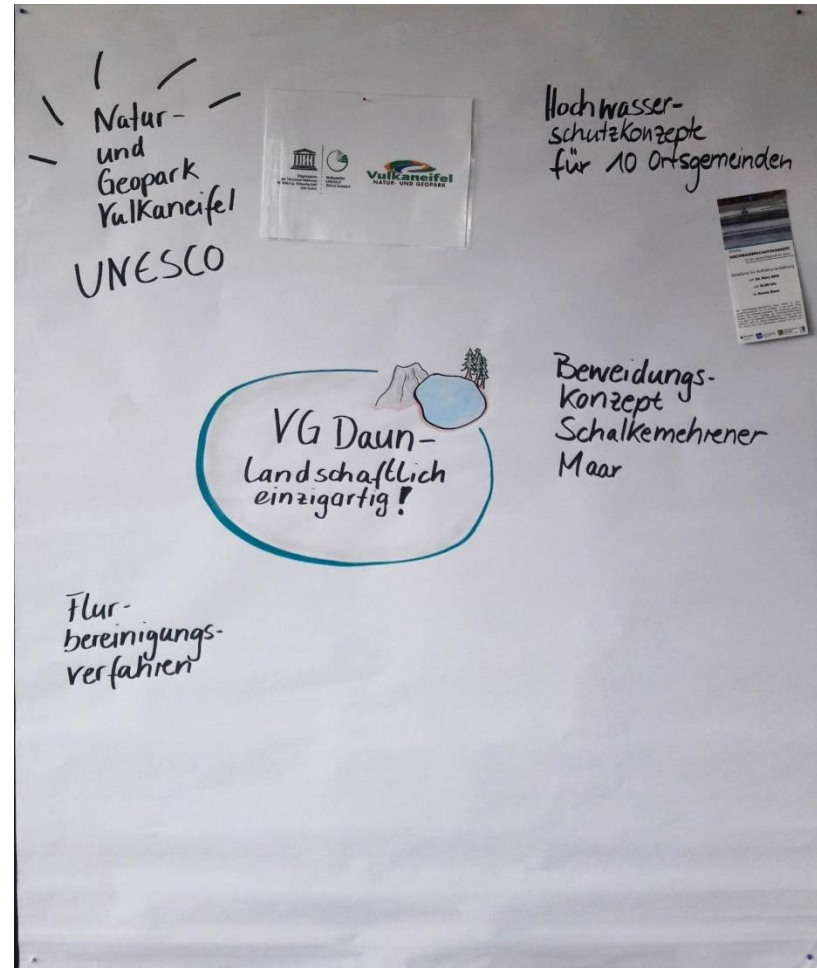 Natur-
und
Geopark
Vulkaneifel
UNESCO
Vulkaneifel
NATUR- UND GEOPARK
Hochwasser-
schutzkonzepte
für 10 Ortsgemeinden
HOCHWASSERSCHUTZKONZEPT
VG Daun-
Landschaftlich
einzigartig!
Beweidungs-
konzept
Schalkemehrener
Maar
Flur-
bereinigungs-
verfahren